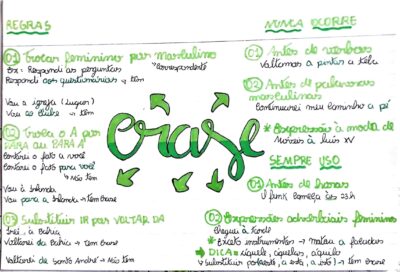 REGRAS
01 Trocar feminino por masculino
Ex: Respondi as perguntas
correspondente
Respondi aos questionários → têm
Vou a igreja (lugar)
Vou ao clube → têm
02 Troca o A por
PARA ou PARA A
Contarei o fato a você
Contarei o fato para você
Não têm
Vou à Irlanda
Vou para a Irlanda → têm crase
03 Substituir IR por VOLTAR DA
Irei à Bahia
Voltarei da Bahia → têm crase
Voltarei de Santo André → Não têm
crase
NUNCA OCORRE
01 Antes de verbos
Voltamos a pintar a tela
02 Antes de palavras
masculinas
Continuarei meu caminho a pé
* Expressões à moda de
Móveis à Luís XV
SEMPRE USO
01 Antes de horas
O funk começa às 23h
02 Expressões adverbiais femininas
Cheguei à tarde
* Exceto instrumentos → matou a facadas
DICA = àquele, àquelas, àquilo
Substituir por (este, a esta, a isto) → têm crase